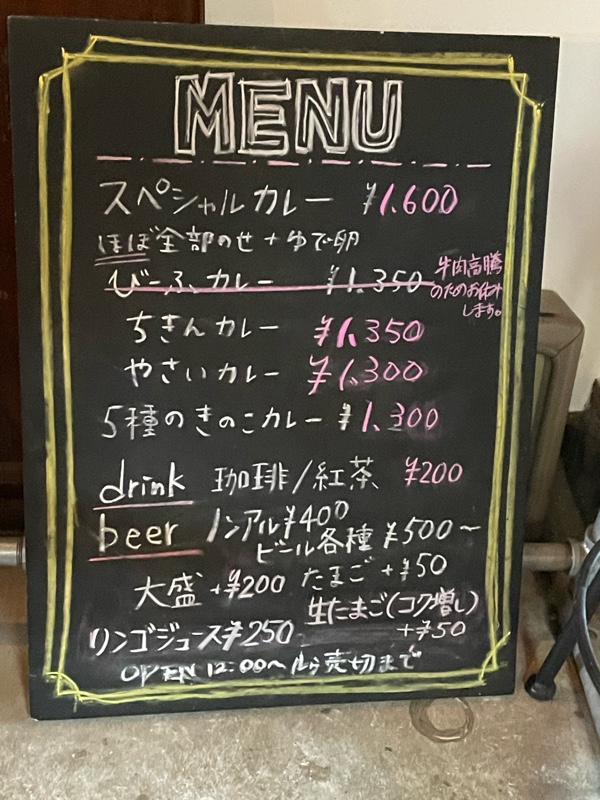 MENU
スペシャルカレー ¥1,600
ほぼ全部のせ+ゆで卵
びーふカレー ¥1,350
牛肉高騰
のためお休み
します。
ちきんカレー ¥1,350
やさいカレー ¥1,300
5種のきのこカレー ¥1,300
drink 珈琲/紅茶 ¥200
beer ノンアル¥400
ビール各種 ¥500〜
大盛+¥200
たまご+¥50
生たまご(コク増し)
+¥50
リンゴジュース¥250
OPEN 12:00〜 売切まで